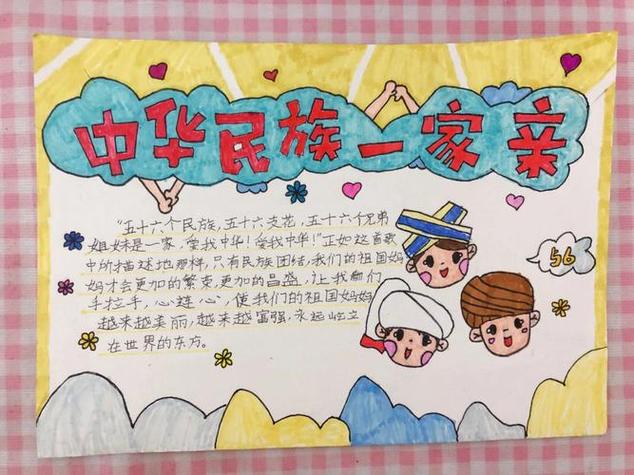 中华民族一家亲
"五十六个民族,五十六支花,五十六个兄弟
姐妹是一家,爱我中华!爱我中华!"正如这首歌
中所描述地那样,只有民族团结,我们的祖国妈
妈才会更加的繁荣,更加的昌盛,让我们
手拉手,心连心,使我们的祖国妈妈
越来越美丽,越来越富强,永远屹立
在世界的东方。
56